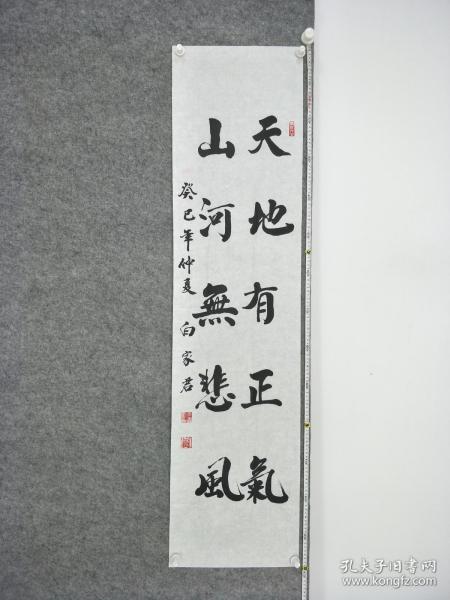 天地有正氣
山河無悲風
癸巳年仲夏 白家君
孔夫子旧书网
www.kongfz.com